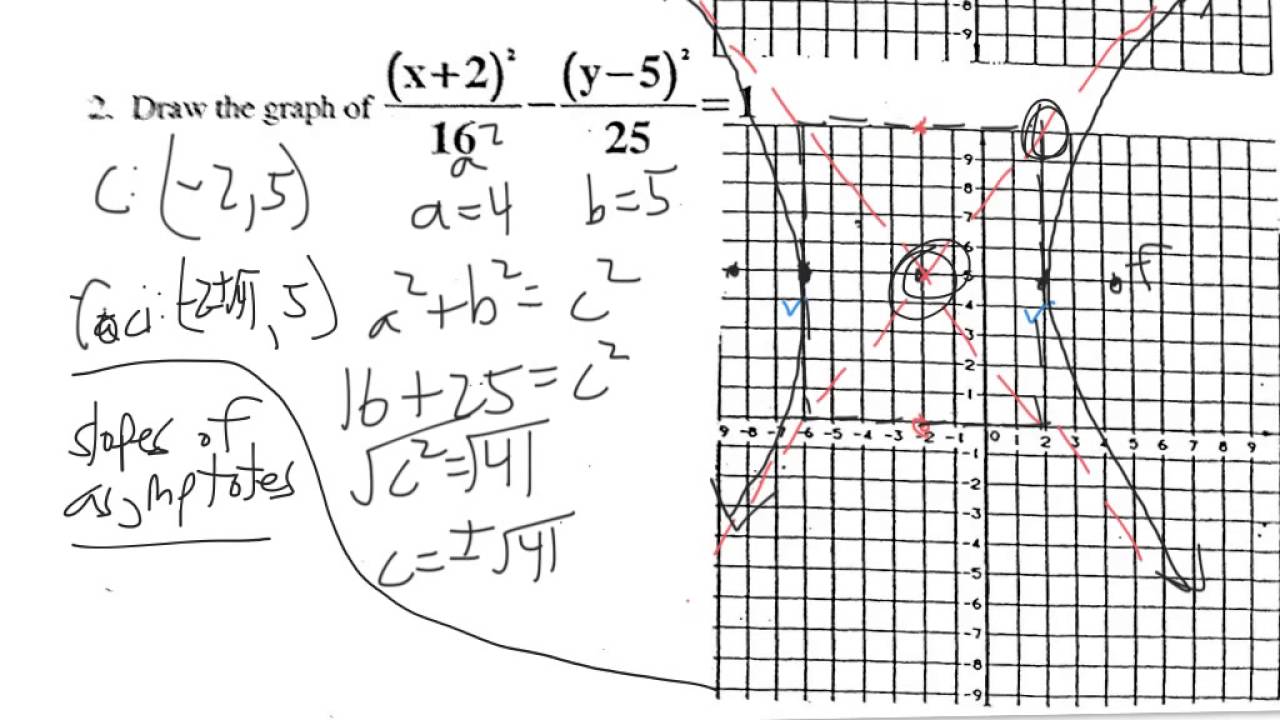 2. Draw the graph of (x+2)²/16 − (y−5)²/25 = 1
a²
C: (-2,5)
a=4 b=5
foci: (-2±√41, 5)
a²+b²=c²
16+25=c²
√c²=√41
c=±√41
slopes of
asymptotes
-8
-9
9
8
7
6
5
f
4
v v
3
2
1
9 -8 -7 -6 -5 -4 -3 -2 -1 0 1 2 3 5 6 7 8 9
-1
-2
-3
-4
-5
-6
-7
-8
-9